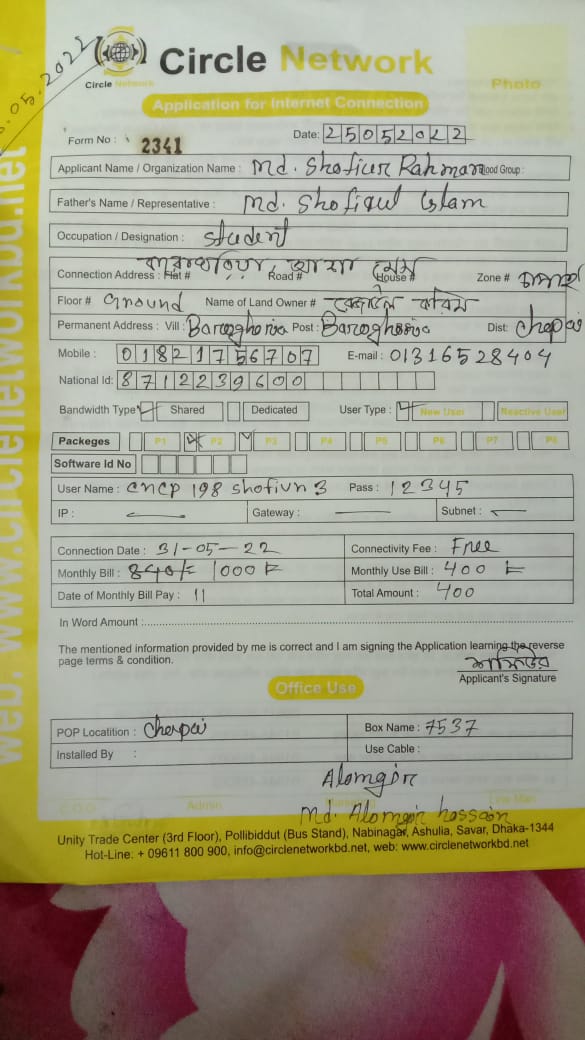 .05.2022
Circle Network
Circle Network
Photo
Application for Internet Connection
Form No : 2341
Date: 25052022
Applicant Name / Organization Name : Md. Shoficur Rahman Blood Group :
Father's Name / Representative : Md. Shofiqul Islam
Occupation / Designation : Student
Connection Address : Flat # Road # House # Zone #
Floor # Ground Name of Land Owner #
Permanent Address : Vill : Baroghoria Post : Baroghoria Dist: Chapai
Mobile : 01821756707 E-mail : 01316528404
National Id: 8712239600
Bandwidth Type Shared Dedicated User Type : New User Reactive User
Packeges P1 P2 P3 P4 P5 P6 P7 P8
Software Id No
User Name : cncp 198 shofiun3 Pass : 12345
IP : Gateway : Subnet :
Connection Date : 31-05-22 Connectivity Fee : Free
Monthly Bill : 840/= 1000 Monthly Use Bill : 400
Date of Monthly Bill Pay : 11 Total Amount : 400
In Word Amount :
The mentioned information provided by me is correct and I am signing the Application learning the reverse
page terms & condition.
Applicant's Signature
Office Use
POP Locatition : Chapai Box Name : 7537
Installed By : Use Cable :
Alomgir
C.O.O Admin
Md. Alomgir hossain
Unity Trade Center (3rd Floor), Pollibiddut (Bus Stand), Nabinagar, Ashulia, Savar, Dhaka-1344
Hot-Line: + 09611 800 900, info@circlenetworkbd.net, web: www.circlenetworkbd.net
web: www.circlenetworkbd.net